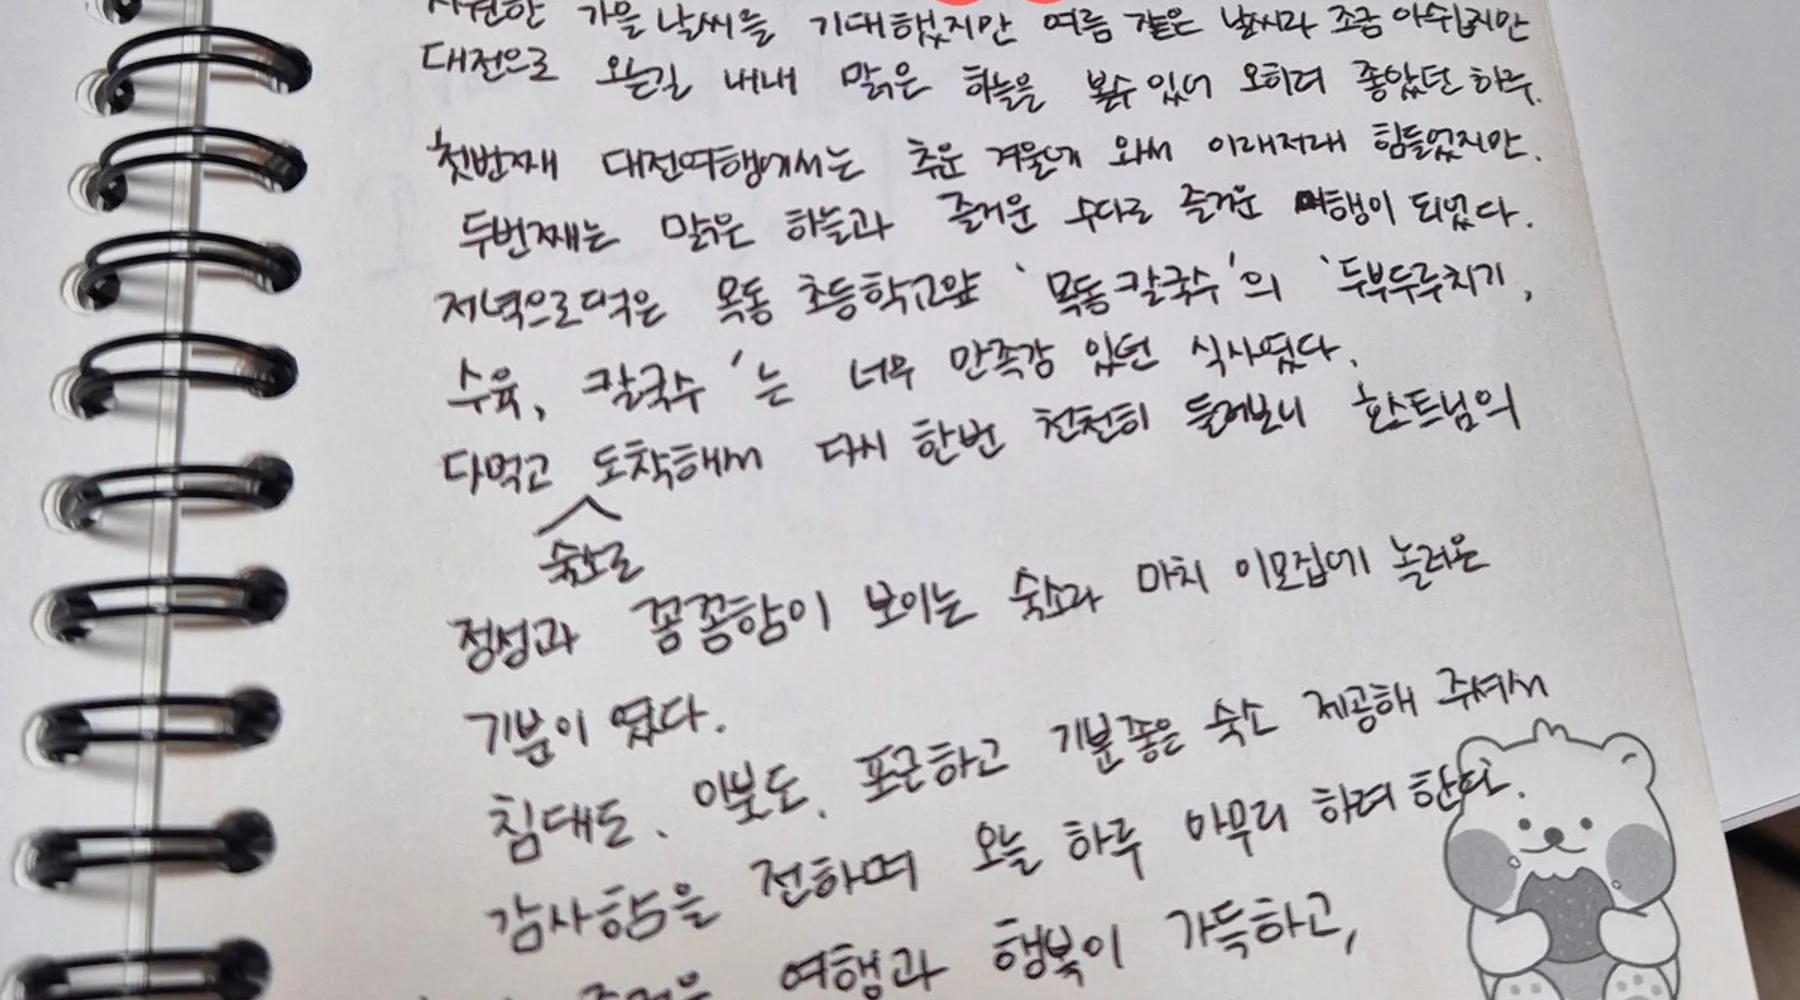 시원한 가을 날씨를 기대했지만 여름 같은 날씨라 조금 아쉽지만
대전으로 오는길 내내 맑은 하늘을 볼수 있어 오히려 좋았던 하루.
첫번째 대전여행에서는 추운 겨울에 와서 이래저래 힘들었지만.
두번째는 맑은 하늘과 즐거운 수다로 즐거운 여행이 되었다.
저녁으로먹은 목동 초등학교앞 '목동칼국수'의 '두부두루치기,
수육, 칼국수'는 너무 만족감 있던 식사였다.
다먹고 도착해서 다시 한번 천천히 둘러보니 호스트님의
숙소로
정성과 꼼꼼함이 보이는 숙소라 마치 이모집에 놀러온
기분이 였다.
침대도. 이불도. 포근하고 기분좋은 숙소 제공해 주셔서
감사함을 전하며 오늘 하루 마무리 하려 한다.
즐거운 여행과 행복이 가득하고,